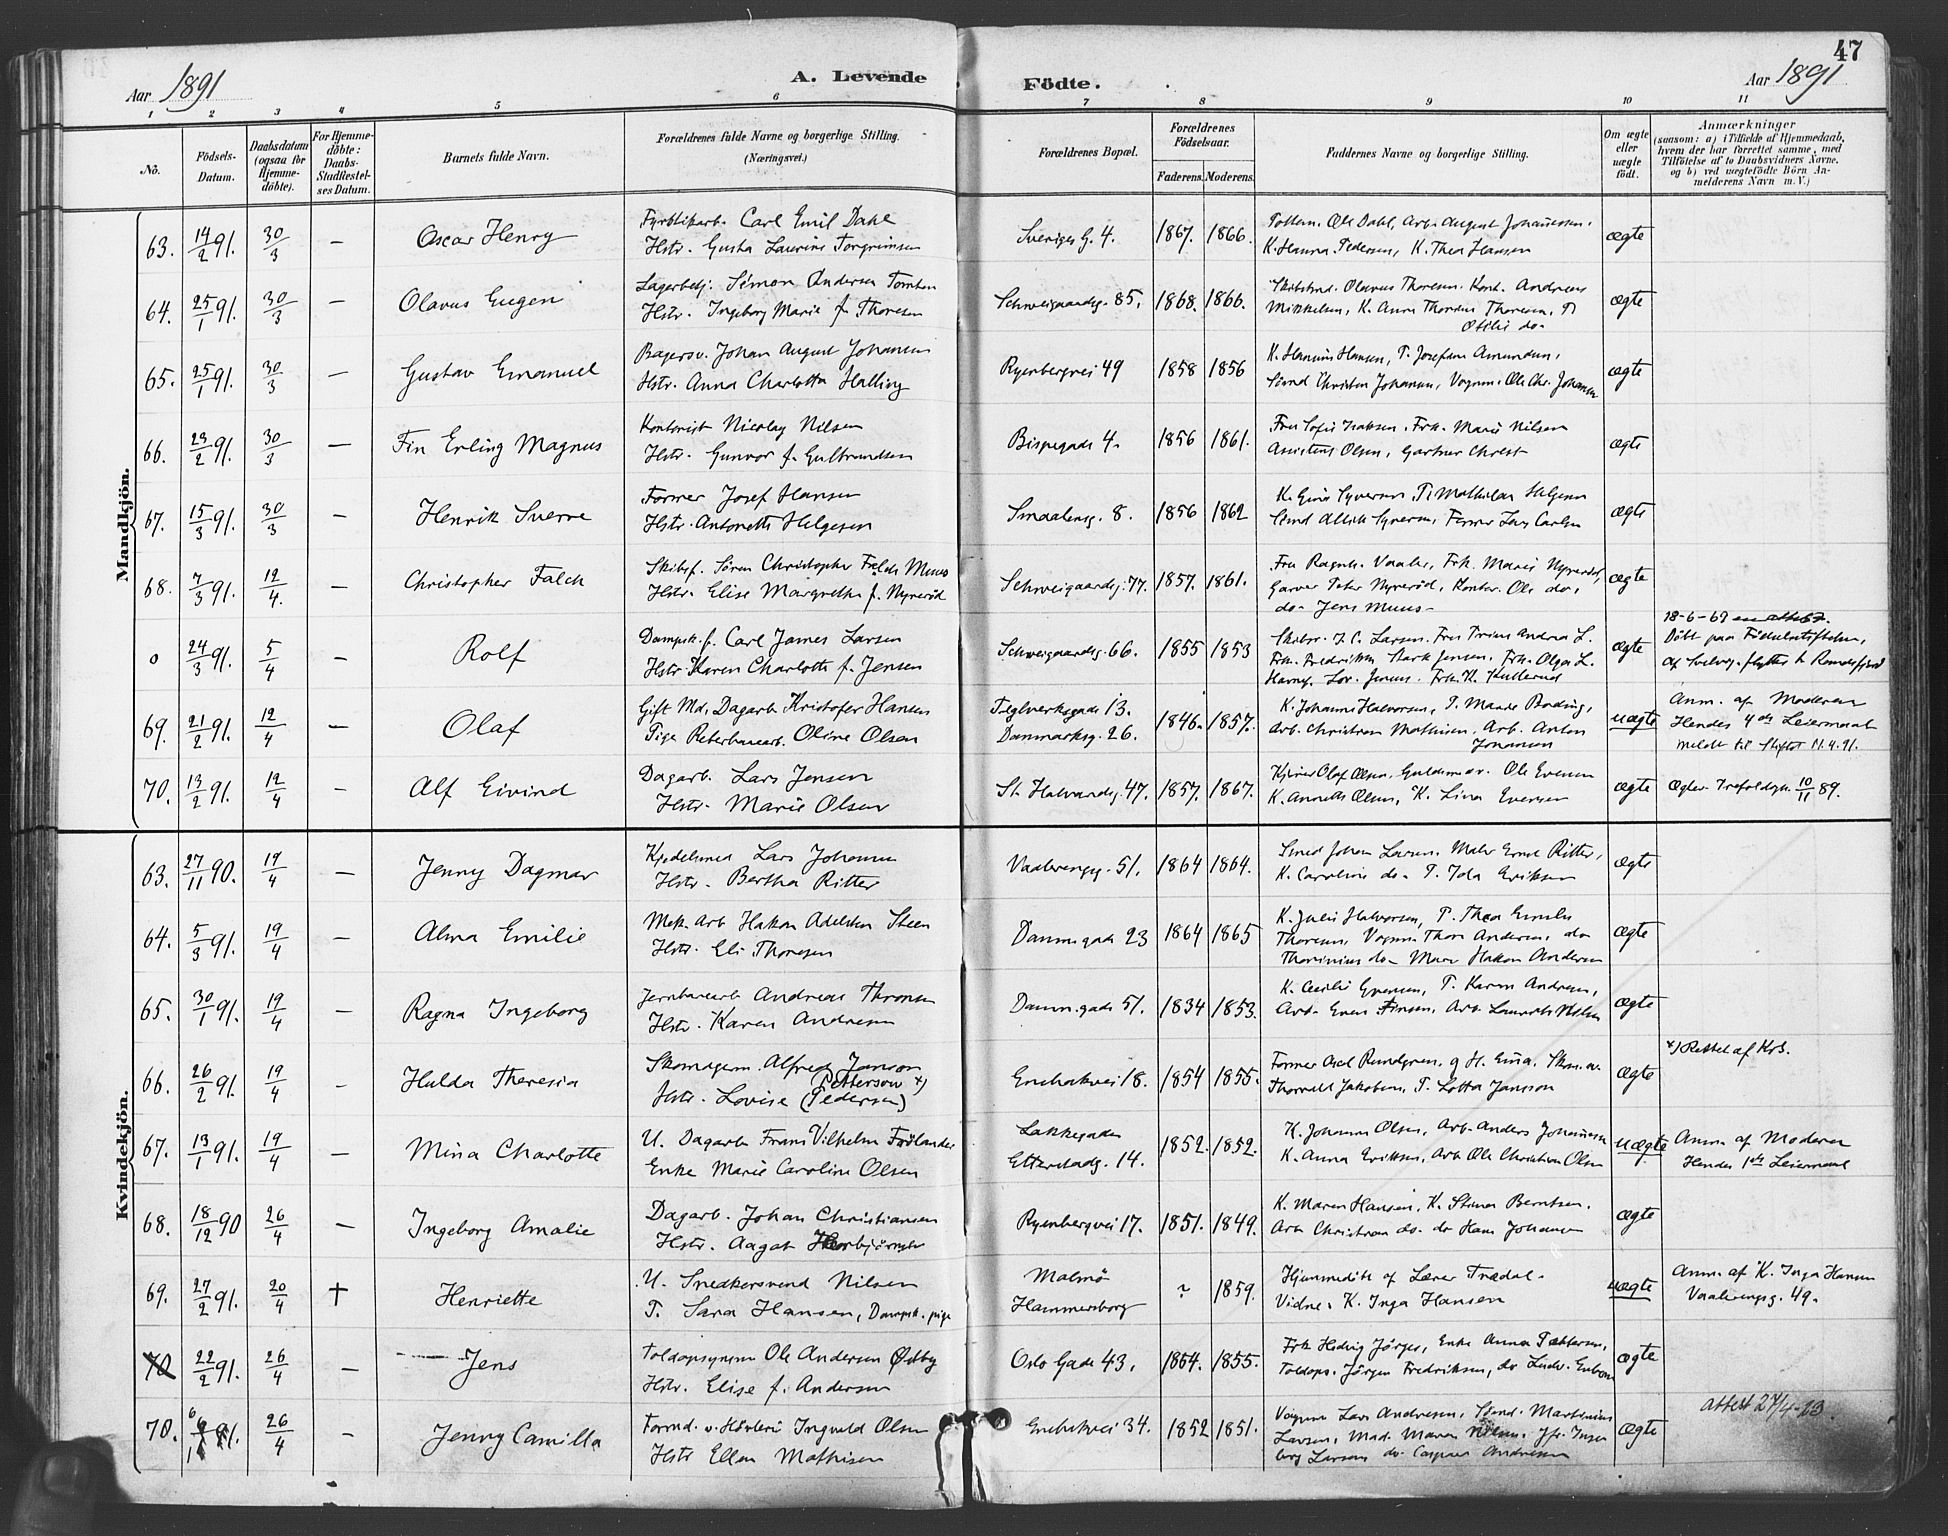 47
Aar 1891
A. Levende Födte.
Aar 1891
1 2 3 4 5 6 7 8 9 10 11
No.
Födsels-Datum.
Daabsdatum (ogsaa for Hjemme-döbte).
For Hjemme-döbte: Daabs-Stadfæstel-ses Datum.
Barnets fulde Navn.
Forældrenes fulde Navne og borgerlige Stilling. (Næringsvei.)
Forældrenes Bopæl.
Forældrenes Födselsaar.
Faderens. Moderens.
Faddernes Navne og borgerlige Stilling.
Om ægte eller uægte födt.
Anmærkninger
(saasom: a) i Tilfælde af Hjemmedaab, hvem der har forrettet samme, med Tilföielse af to Daabsvidners Navne, og b) ved uægtefödte Börn Anmelderens Navn m. V.)
Mandkjön.
63. 14/2 91. 30/3 — Oscar Henry
Fyrstikarb. Carl Emil Dahl
Hstr. Gusta Laurine Torgrimsen
Sveriges G. 4. 1867. 1866.
Ole Dahl, Arb. August Johannesen,
K. Hanna Pedersen, K. Thea Hansen
ægte
64. 25/1 91. 30/3 — Olavus Eugen
Lagerbetj. Simon Andersen Tomten
Hstr. Ingeborg Marie f. Thoresen
Schweigaardsg. 85. 1868. 1866.
Olavus Thoresen. Andreas
Mikkelsen, K. Anna Thoresen,
Otilie do.
ægte
65. 25/1 91. 30/3 — Gustav Emanuel
Bagersv. Johan August Johansen
Hstr. Anna Charlotta Halling
Ryenbergvei 49 1858 1856
K. Hansine Hansen, P. Josefine Amundsen,
Christen Johansen, Vognm. Ole Chr. Johansen
ægte
66. 23/2 91. 30/3 — Fin Erling Magnus
Kontorist Nicolay Nilsen
Hstr. Gunvor f. Gulbrandsen
Bispegade 4. 1856 1861.
Fru Sofie Isaksen, Frk. Marie Nilsen
Assistent Olsen, Gartner Christ
ægte
67. 15/3 91. 30/3 — Henrik Sverre
Former Josef Hansen
Hstr. Antonette Helgesen
Smaalensg. 8. 1856 1862
K. Gina Syversen, P. Mathilde Helgesen
Syversen, Former Carlsen
ægte
68. 7/3 91. 12/4. — Christopher Falck
Skibsf. Sören Christopher Falch Muus
Hstr. Elise Margrethe f. Nyveröd
Schweigaardsg. 77. 1857. 1861.
Fru Vaaler, Frk. Marie Nyveröd,
Garver Peter Nyveröd, Kontor. Ole do.
do. Jens Muus
ægte
18-6-69 en attest.
0 24/3 91. 5/4 — Rolf
Dampsk.f. Carl James Larsen
Hstr. Karen Charlotte f. Jensen
Schweigaardsg. 66. 1855 1853
J. C. Larsen, Fru Trine Andrea L.
Frk. Fredrikke Jensen, Frk. Olga L.
Jensen. Frk. K. Kullerud
ægte
Döbt paa Födselsstiftelsen,
69. 21/2 91. 12/4 — Olaf
Gift Md. Dagarb. Kristofer Hansen
Pige Reberbanearb. Oline Olsen
Teglverksgade 13.
Danmarksg. 26. 1846. 1857.
K. Johanne Halvorsen, P.
Arb. Christian Mathisen, Arb. Anton
Johansen
uægte
Anm. af Moderen
Hendes 4de Leiermaal
meldt til Stiftet 11.4.91.
70. 13/2 91. 12/4 — Alf Eivind
Dagarb. Lars Jensen
Hstr. Marie Olsen
St. Halvardsg. 47. 1857. 1867.
Olaf Olsen, Guldsmedsv. Ole Evensen
K. Annette Olsen, K. Lina Evensen
ægte
Ægtev. Trefoldigh. 10/11 89.
Kvindekjön.
63. 27/11 90. 19/4 — Jenny Dagmar
Kjedelsmed Lars Johansen
Hstr. Bertha Ritter
Vaalerengg. 51. 1864 1864.
Smed Johan Larsen, Maler Ernst Ritter,
K. Caroline do. P. Ida Eriksen
ægte
64. 5/3 91. 19/4 — Alma Emilie
Mek. Arb. Hakon Adelsten Steen
Hstr. Eli Thoresen
Danmsgade 23 1864 1865
K. Julie Halvorsen, P. Thea Emilie
Thoresen, Vognm. Thore Andersen, do
do. Hakon Andersen
ægte
65. 30/1 91. 19/4 — Ragna Ingeborg
Jernbanearb Andreas Thronsen
Hstr. Karen Andresen
Danm.gade 51. 1834 1853.
K. Cecilie Evensen, P. Karen Andresen,
Arb. Even Jensen, Arb. Laurits Nilsen
ægte
66. 26/2 91. 19/4 — Hulda Theresia
Skomagerm. Alfred Janson
Hstr. Lovise Petterson x) (Pedersen)
Enebakvei 18. 1854 1855.
Former Axel Rundgren, og H. Emma,
Thorvald Jakobsen, P. Lotta Jansson
ægte
x) Rettet af Krb.
67. 13/1 91. 19/4 — Mina Charlotte
U. Dagarb Frans Vilhelm Frölander
Enke Marie Caroline Olsen
Lakkegaden
Etterstadg. 14. 1852. 1852.
K. Johanne Olsen, Arb. Anders Johannesen
K. Anna Eriksen, Arb. Ole Christian Olsen
uægte
Anm. af Moderen
Hendes 1ste Leiermaal
68. 18/12 90 26/4 — Ingeborg Amalie
Dagarb. Johan Christiansen
Hstr. Aagot Thorbjörnsdr
Ryenbergvei 17. 1851. 1849.
K. Maren Hansen, K. Stina Berntsen.
Arb Christian do. do Hans Johansen
ægte
69. 27/2 91. 20/4 † Henriette
U. Snedkersvend Nilsen
P. Sara Hansen, Dampsk. pige
Malmö
Hammersborg ? 1859.
Hjemmedöbt af Lærer Trædal.
Vidne: K. Inga Hansen
uægte
Anm. af K. Inga Hansen
Vaalerengg. 49.
70 22/2 91. 26/4 — Jens
Toldopsynsm Ole Andersen Östby
Hstr. Elise f. Andersen
Oslo Gade 43. 1864. 1855.
Frk Hedvig Jörges, Enke Anna Pettersen,
Toldops. Jörgen Fredriksen, do Ludv.
ægte
70. 6/1 91. 26/4 — Jenny Camilla
Formd. v. Hövleri Ingvald Olsen
Hstr Ellen Mathisen
Enebakvei 34. 1852 1851.
Vognm Lars Andresen, Martinius
Larsen, Mad. Maren Nilsen, Inge
borg Larsen do. Caspar Andresen
ægte
attest 27/4-23.